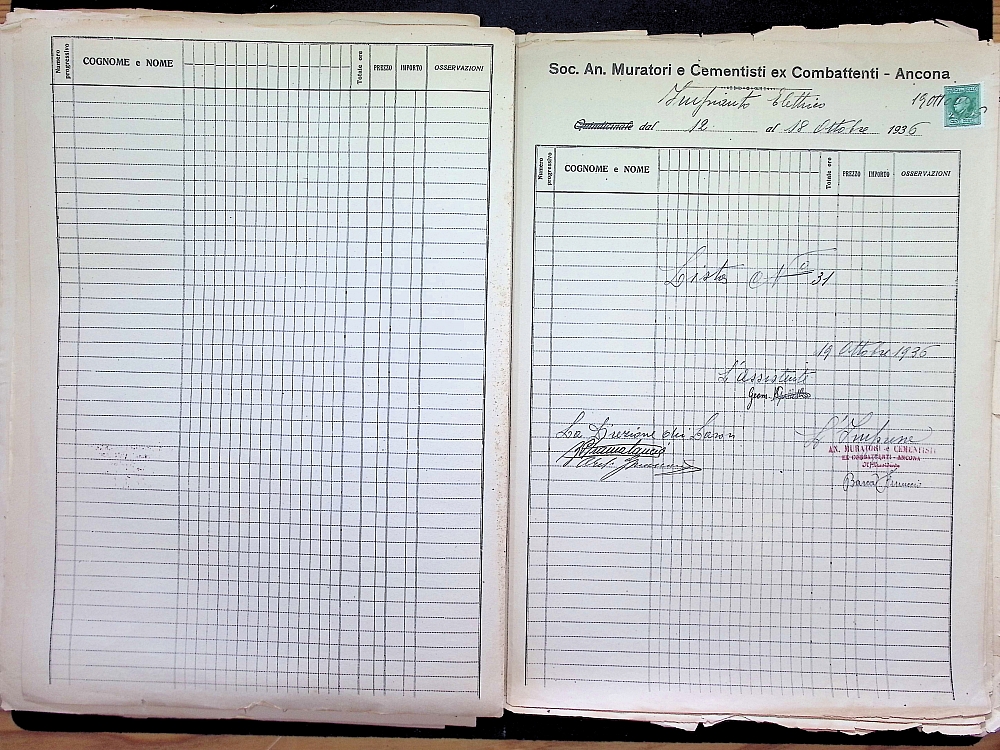 Numero progressivo COGNOME e NOME Totale ore PREZZO IMPORTO OSSERVAZIONI
Soc. An. Muratori e Cementisti ex Combattenti - Ancona
Impianto Elettrico
Quindicinale dal 12 al 18 Ottobre 1936
Numero progressivo COGNOME e NOME Totale ore PREZZO IMPORTO OSSERVAZIONI
Lista N° 31
19 Ottobre 1936
L'Assistente
Geom.
La Direzione dei Lavori
L'Impresa
AN. MURATORI e CEMENTISTI
EX COMBATTENTI - ANCONA